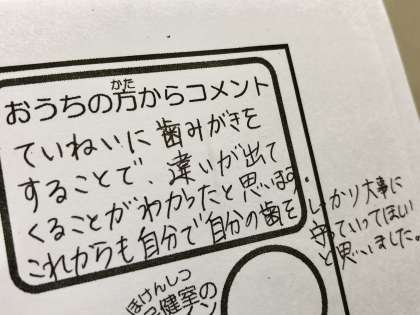 おうちの方からコメント
かた
ていねいに歯みがきを
することで、違いが出て
くることがわかったと思います。
これからも自分で自分の歯を
しっかり大事に
守っていってほしい
と思いました。
ほけんしつ
健室の